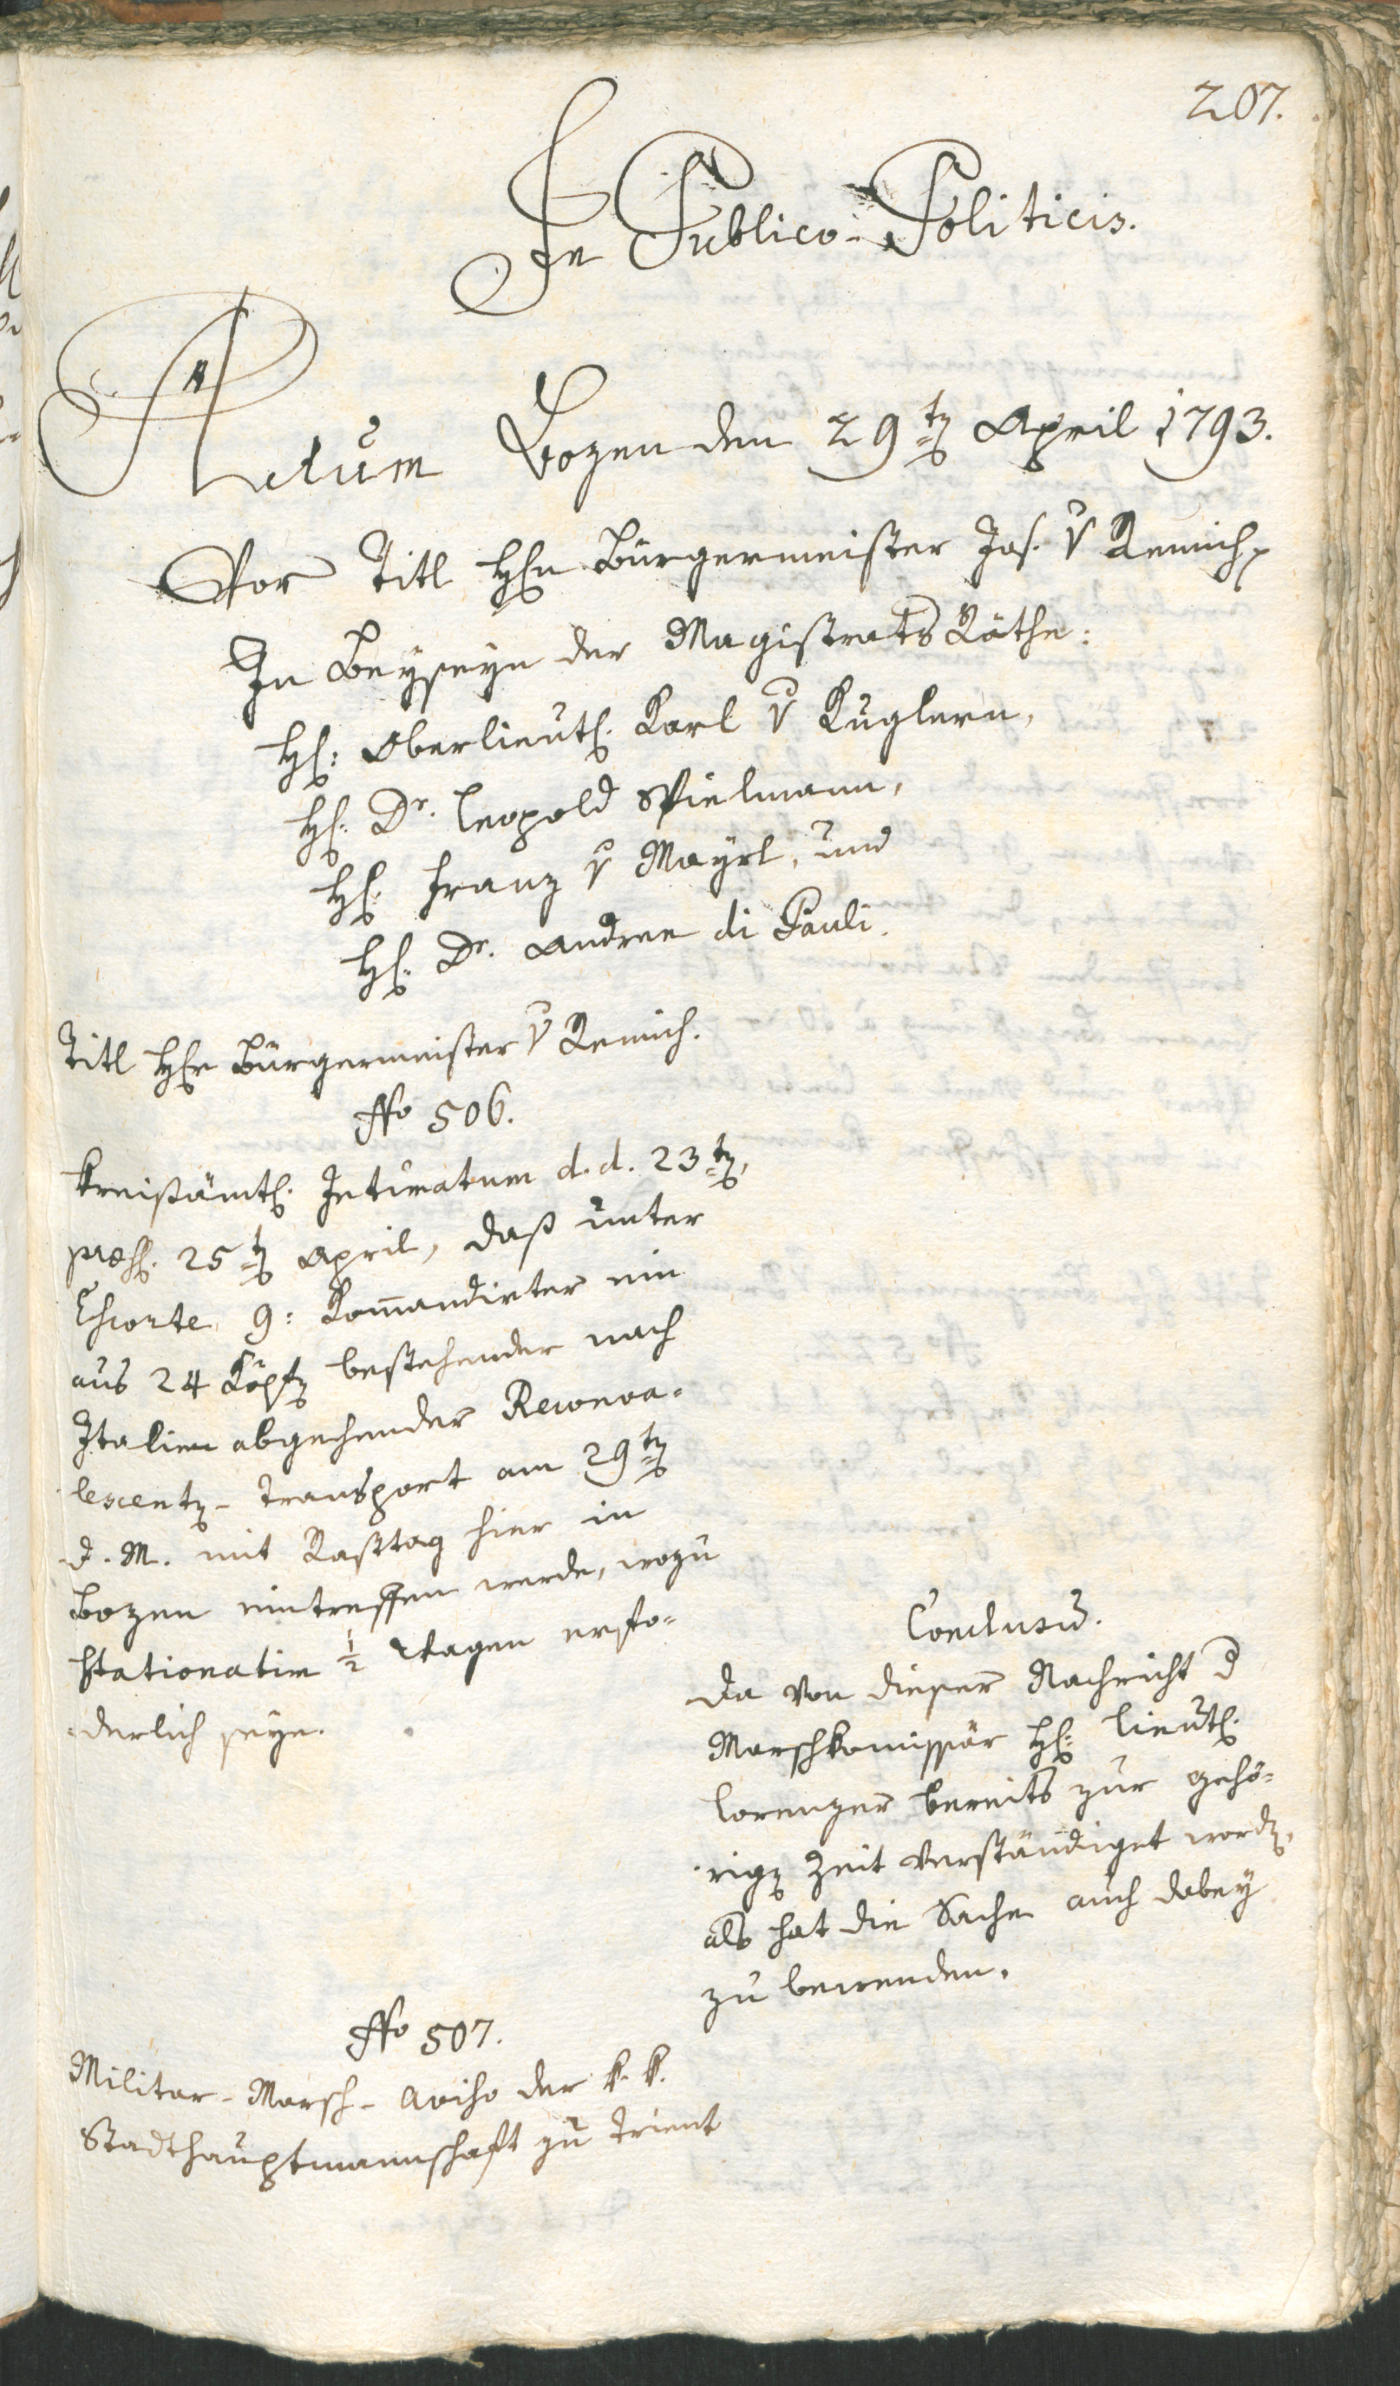 207.
In Publico-Politicis.
Actum Bozen den 29ten April 1793.
Vor Titl Hhn Bürgermeister Jos. v Remich
In Beyseyn der Magistrats Räthe:
H: Oberlieut. Karl v Kuglern,
H. Dr. Leopold Spielmann,
H. Franz v Mayrl, und
H. Dr. Andree di Pauli.
Titl Hhr Bürgermeister v Remich.
No 506.
Kreißämtl. Intimatum d. d. 23ten,
præs. 25ten April, daß unter
Escorte 9: Komandirter ein
aus 24 Köpfen bestehender nach
Italien abgehender Reconva-
lescenten-Transport am 29ten
d. M. mit Rasttag hier in
Bozen eintreffen werde, wozu
stationatim ½ Wagen erfo-
derlich seye.
Conclusum.
Da von dieser Nachricht der
Marschkomissär H: Lieut.
Lorenzer bereits zur gehö-
rigen Zeit verständiget worden,
als hat die Sache auch dabey
zu bewenden.
No 507.
Militar-Marsch-Aviso der k. k.
Stadthauptmannschaft zu Trient